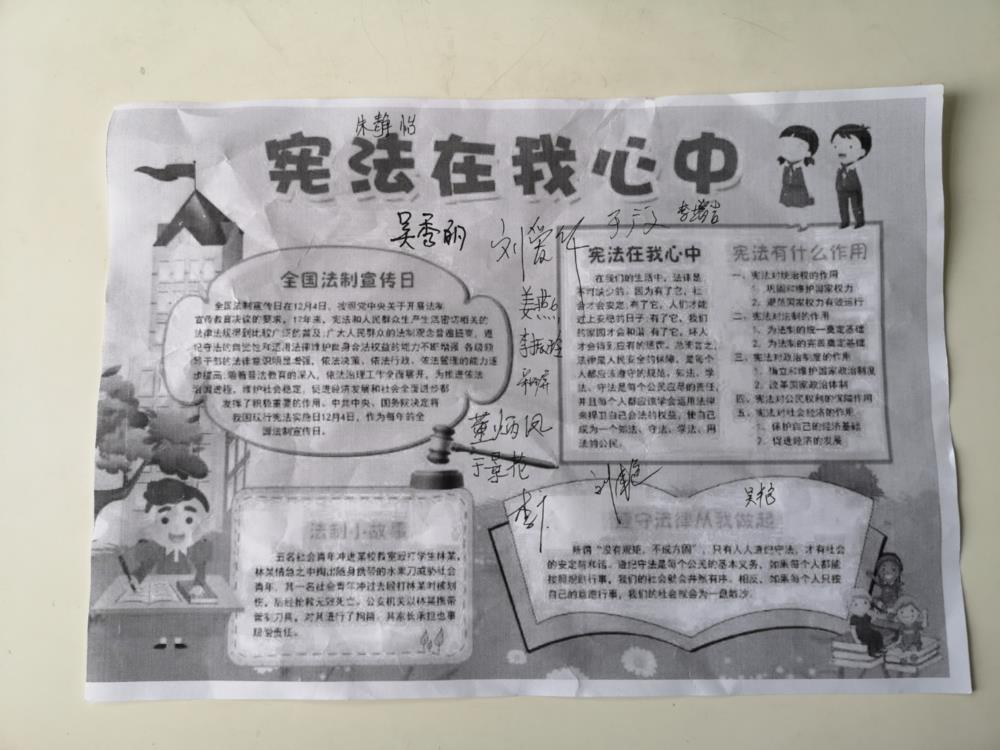 朱静怡
宪法在我心中
吴秀丽
刘爱华
全国法制宣传日
全国法制宣传日在12月4日。按照党中央关于开展法制
宣传教育决议的要求,12年来,宪法和人民群众生产生活密切相关的
法律法规得到比较广泛的普及,广大人民群众的法制观念普遍提高,遵
纪守法的自觉性和运用法律维护自身合法权益的能力不断增强,各级领
导干部的法律意识明显增强,依法决策、依法行政、依法管理的能力逐
步提高;随着普法教育的深入,依法治理工作全面展开,为推进依法
治国进程,维护社会稳定,促进经济发展和社会全面进步都
发挥了积极重要的作用。中共中央、国务院决定将
我国现行宪法实施日12月4日,作为每年的全
国法制宣传日。
姜燕
李振
董炳凤
于景花
宪法在我心中
在我们的生活中,法律是
不可缺少的。因为有了它,社
会才会安定;有了它,人们才能
过上安稳的日子;有了它,我们
的家园才会和谐;有了它,坏人
才会得到应有的惩罚。总来言之,
法律是人民安全的保障,是每个
人都应该遵守的规范。知法、学
法、守法是每个公民应尽的责任,
并且每个人都应该学会运用法律
来捍卫自己合法的权益,使自己
成为一个知法、守法、学法、用
法的公民。
宪法有什么作用
一、宪法对统治权的作用
1、巩固和维护国家权力
2、规范国家权力有效运行
二、宪法对法制的作用
1、为法制的统一奠定基础
2、为法制的完善奠定基础
三、宪法对政治制度的作用
1、确立和维护国家政治制度
2、改革国家政治体制
四、宪法对公民权利的保障作用
五、宪法对社会经济的作用
1、保护自己的经济基础
2、促进经济的发展
法制小故事
五名社会青年冲进某校教室殴打学生林某,
林某情急之中掏出随身携带的水果刀威胁社会
青年,其一名社会青年冲过去殴打林某时被划
伤,后经抢救无效死亡。公安机关以林某携带
管制刀具,对其进行了拘留,其家长承担也事
赔偿责任。
吴艳
遵守法律从我做起
所谓“没有规矩,不成方圆”,只有人人遵纪守法,才有社会
的安定与和谐。遵纪守法是每个公民的基本义务,如果每个人都能
按照规则行事,我们的社会就会井然有序。相反,如果每个人只按
自己的意愿行事,我们的社会就会为一盘散沙。